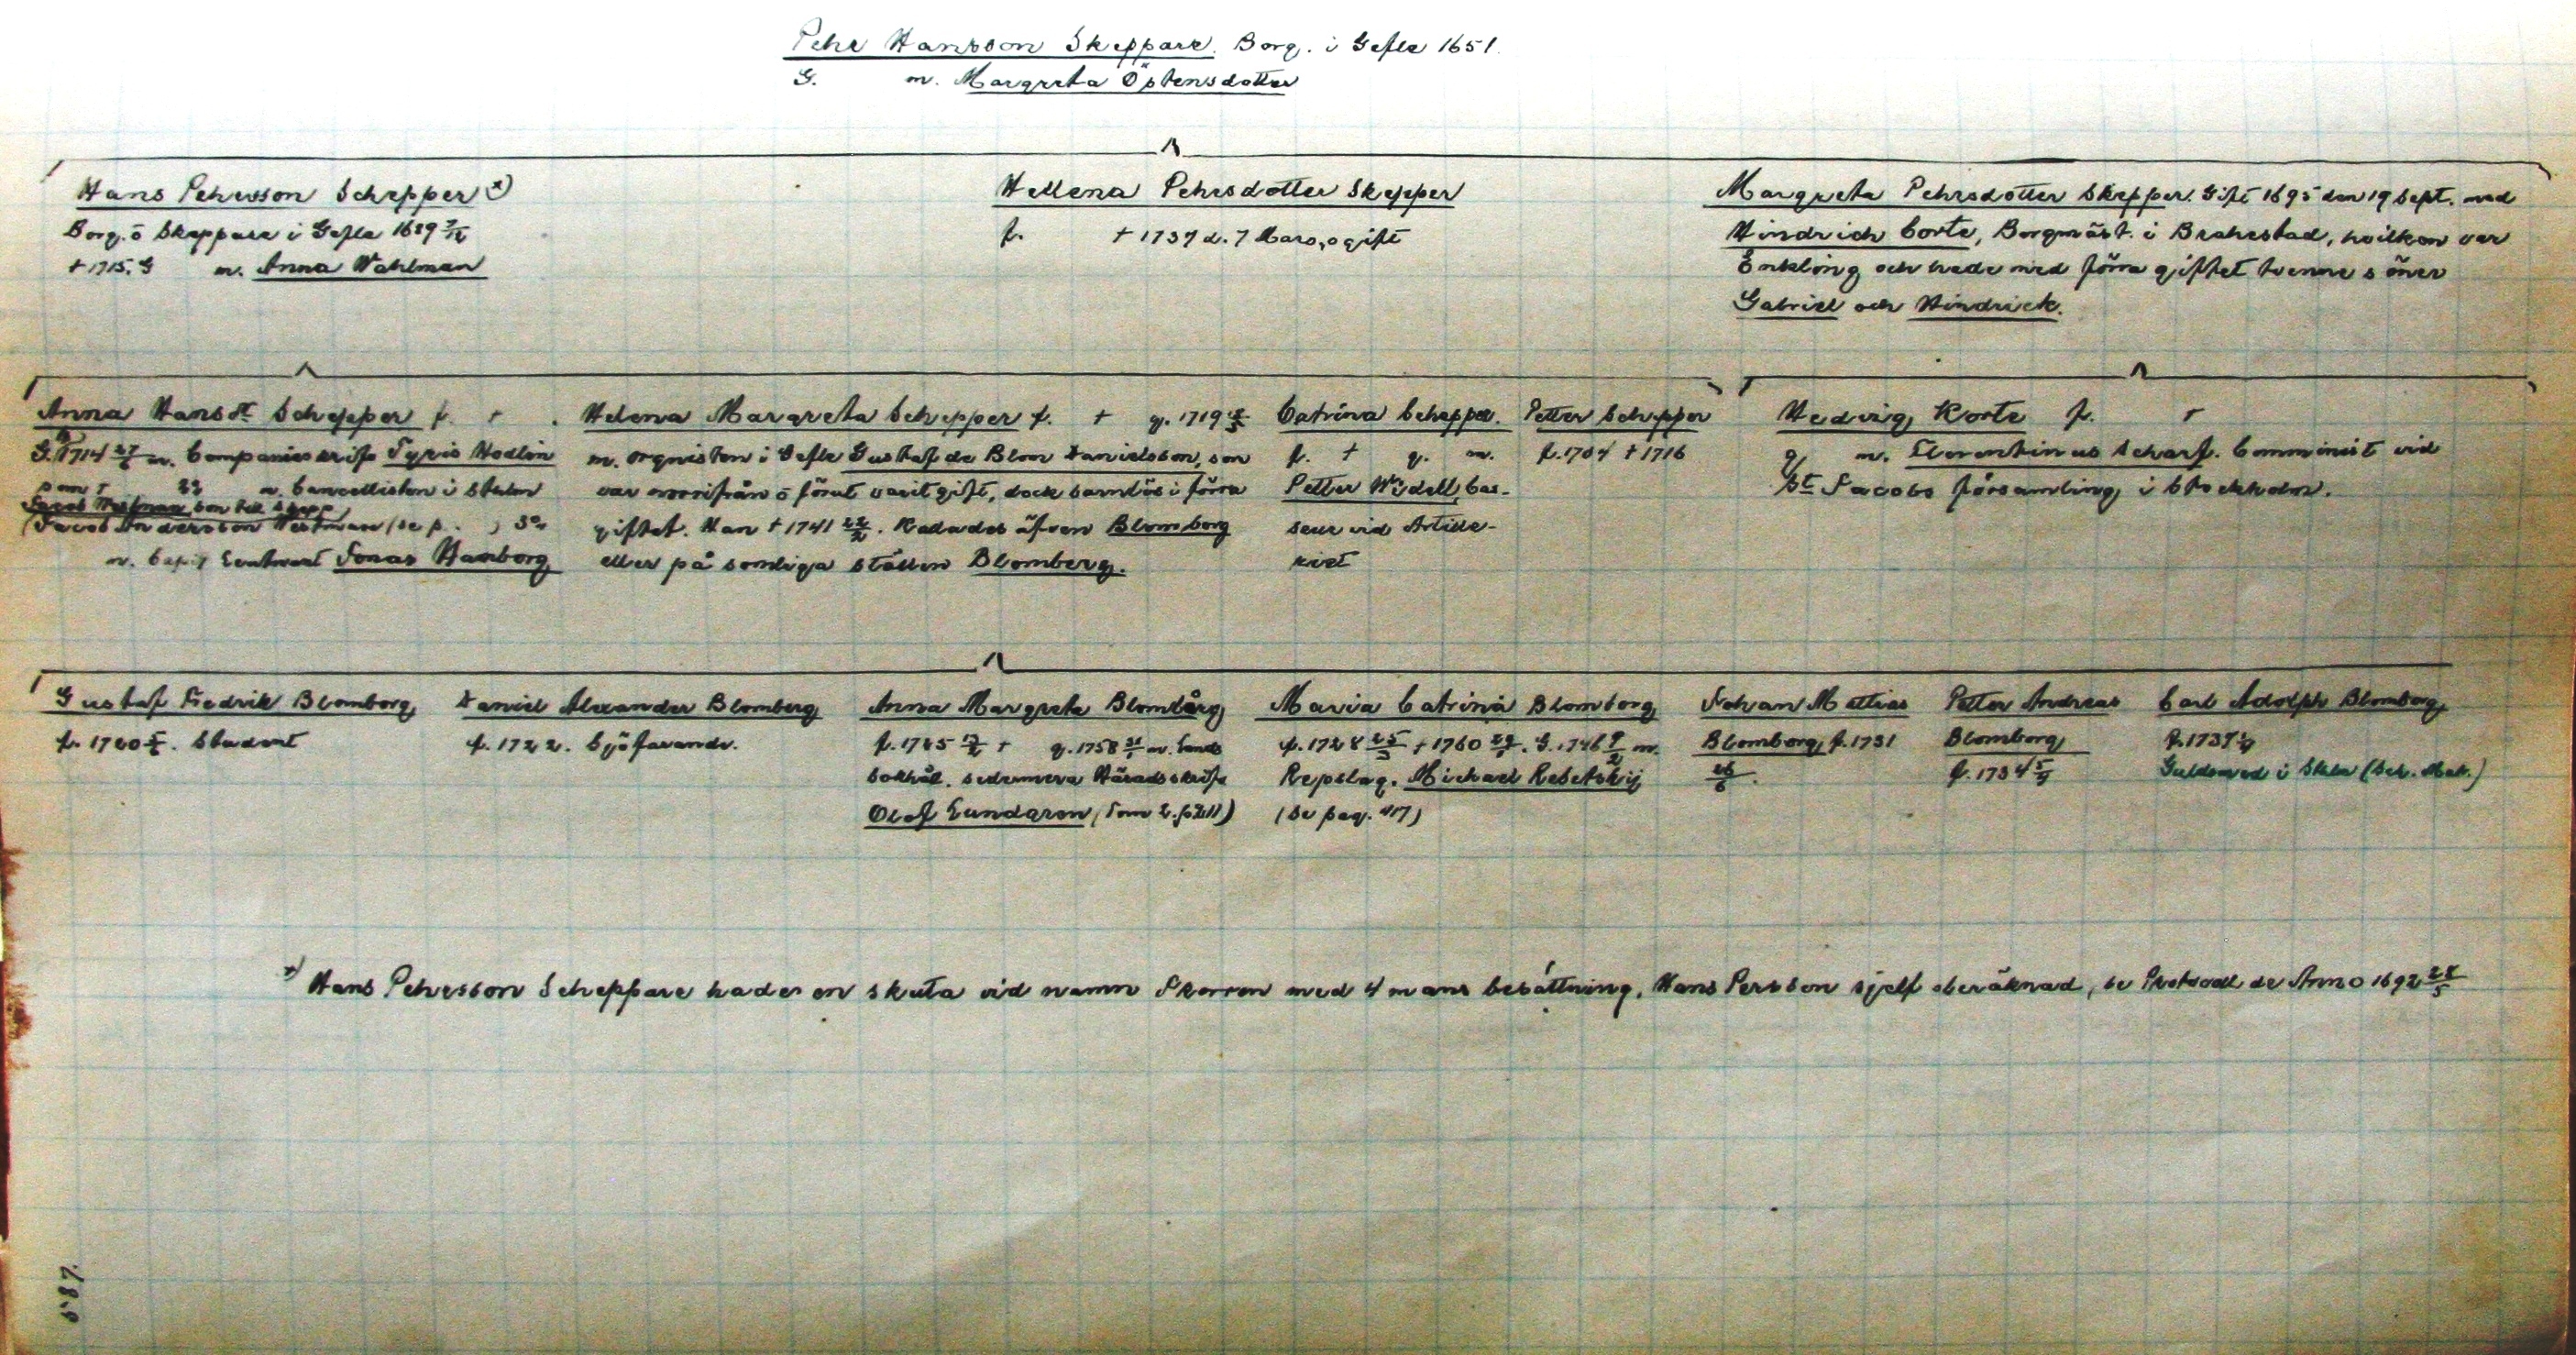 Pehr Hansson Skeppare. Borg. i Gefle 1651.
G. m. Margreta Östensdotter
Hans Pehrsson Schepper x)
Borg. o Skeppare i Gefle 1689
† 1715. G m. Anna Wahlman
Hellena Pehrsdotter Skepper
f. † 1737 d. 7 Mars, ogift
Margreta Pehrsdotter Skepper. Gift 1695 den 19 Sept. med
Hindrich Corte, Borgmäst. i Brahestad, hvilken var
Enkling och hade med förra giftet tvenne söner
Gabriel och Hindrick.
Anna Hansdt Schepper f. †
G. 1° 1714 27/ m. Compagnieskrifv. Hedlin
m. Cancellisten i Sthlm
(Jacob Andersson Westman (se p. ) 3°
m. Lieutnant Jonas Hamborg
Helena Margreta Schepper f. † g. 1719
m. organisten i Gefle Gustaf de Bloom Danielsson, som
var norrifrån o förut varit gift, dock barnlös i förra
giftet. Han † 1741 22/2. Kallades äfven Blomborg
eller på somliga ställen Blomberg.
Catrina Schepper.
f. † g. m.
Petter Widell, Cas-
seur vid Artille-
riet
Petter Schepper
f. 1704 † 1716
Hedvig Korte f. †
g. m. Florentinus Scharf. Comminist. vid
St Jacobs församling i Stockholm.
Gustaf Fredrik Blomborg
f. 1720. Student
Daniel Alexander Blomberg
f. 1722. Sjöfarande.
Anna Margreta Blomborg
f. 1725 † g. 1758 31/ m. Lands
bokhål. sedermera Häradsskrifv
Olof Lundgren (Tom 2. )
Maria Catrina Blomborg
f. 1728 25/3 † 1760 29/. G. 1746 9/2 m.
Repslag. Michael Rebetskij
(Se pag. 417)
Johan Mattias
Blomborg, f. 1731
26/6.
Petter Andreas
Blomborg
f. 1734 5/9
Carl Adolph Blomborg
f. 1737
Guldsmed i Sthlm
x) Hans Pehrsson Scheppare hade en skuta vid namn med 4 mans besättning, Hans Persson sjelf oberäknad, se Protocoll de Anno 1692 28/5
587.